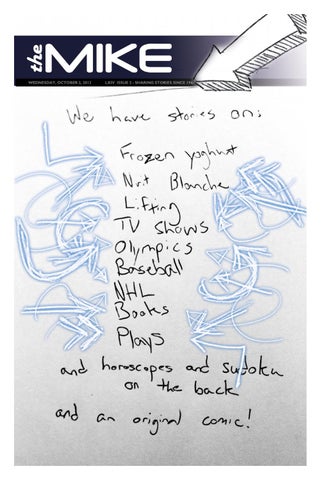 the MIKE
WEDNESDAY, OCTOBER 3, 2012 LXIV ISSUE 5 - SHARING STORIES SINCE 194
We have stories on:
Frozen yoghurt
Nuit Blanche
Lifting
TV shows
Olympics
Baseball
NHL
Books
Plays
and horoscopes and sudoku
on the back
and an original comic!